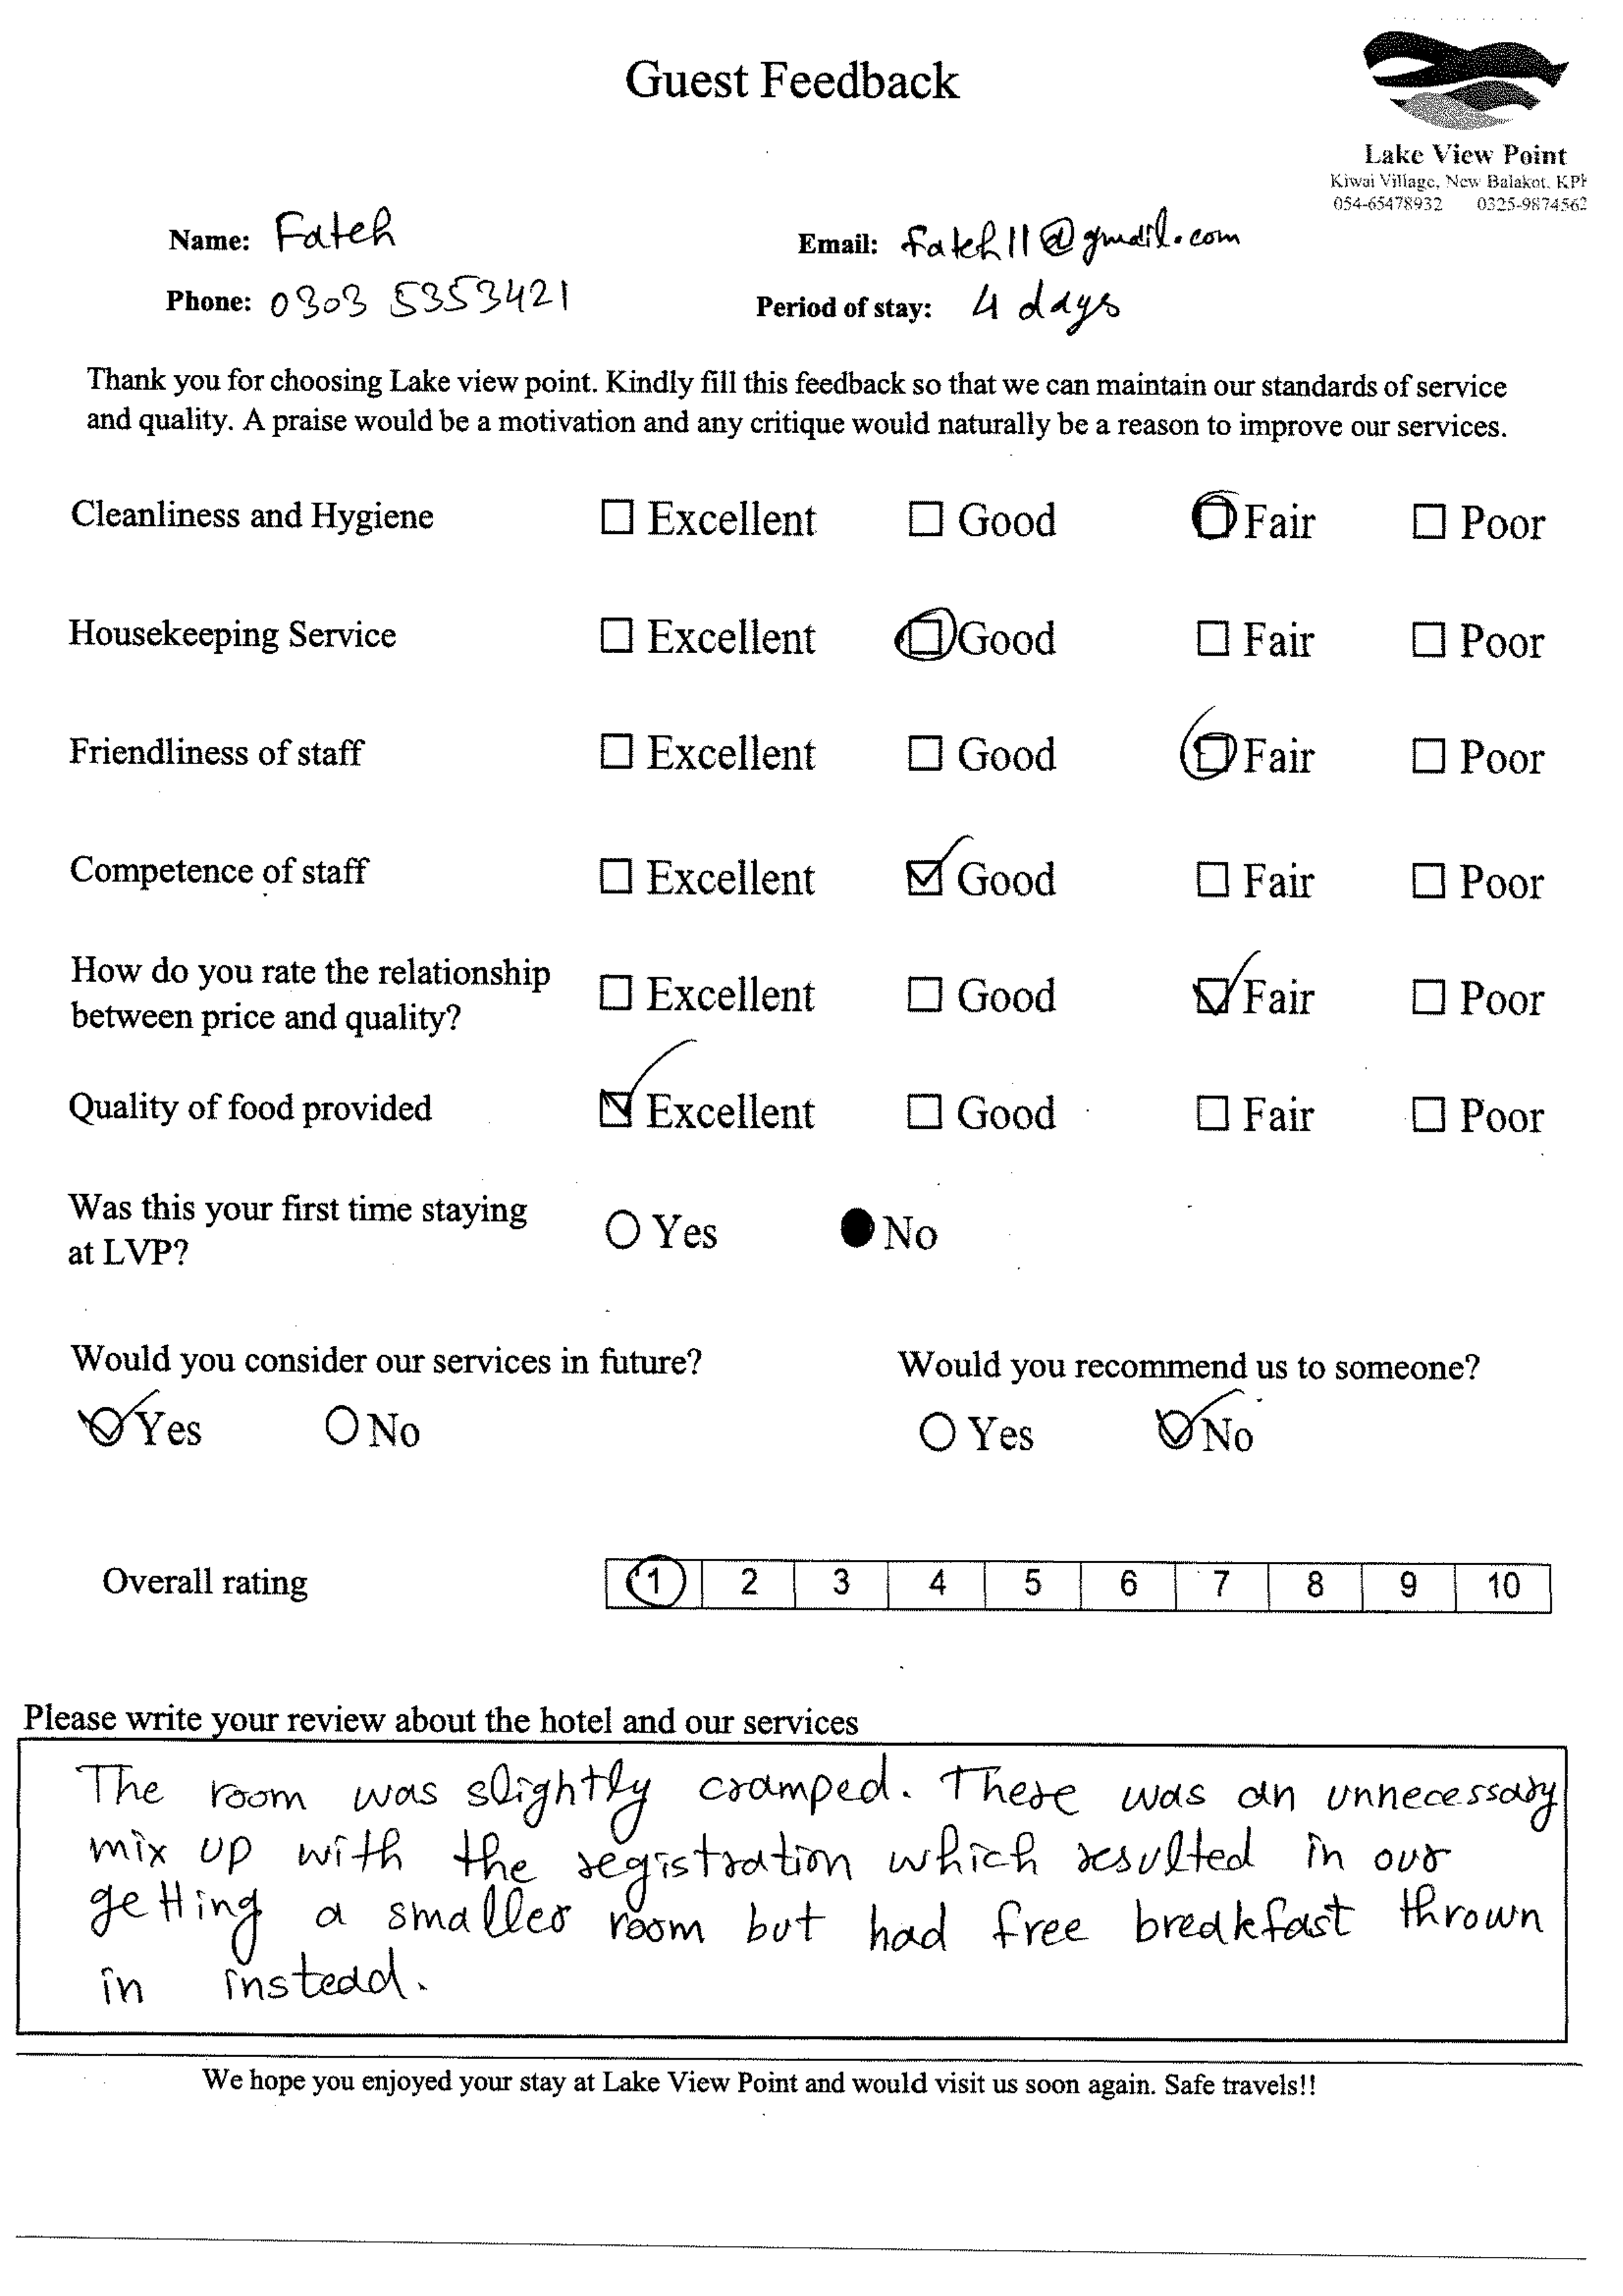 Guest Feedback
Lake View Point
Kiwai Village, New Balakot, KPK
054-65478932 0325-9874562
Name: Fateh
Email: fateh11@gmail.com
Phone: 0303 5353421
Period of stay: 4 days
Thank you for choosing Lake view point. Kindly fill this feedback so that we can maintain our standards of service
and quality. A praise would be a motivation and any critique would naturally be a reason to improve our services.
Cleanliness and Hygiene Excellent Good Fair Poor
Housekeeping Service Excellent Good Fair Poor
Friendliness of staff Excellent Good Fair Poor
Competence of staff Excellent Good Fair Poor
How do you rate the relationship
between price and quality? Excellent Good Fair Poor
Quality of food provided Excellent Good Fair Poor
Was this your first time staying
at LVP? Yes No
Would you consider our services in future?
Yes No
Would you recommend us to someone?
Yes No
Overall rating 1 2 3 4 5 6 7 8 9 10
Please write your review about the hotel and our services
The room was slightly cramped. There was an unnecessary
mix up with the registration which resulted in our
getting a smaller room but had free breakfast thrown
in instead.
We hope you enjoyed your stay at Lake View Point and would visit us soon again. Safe travels!!